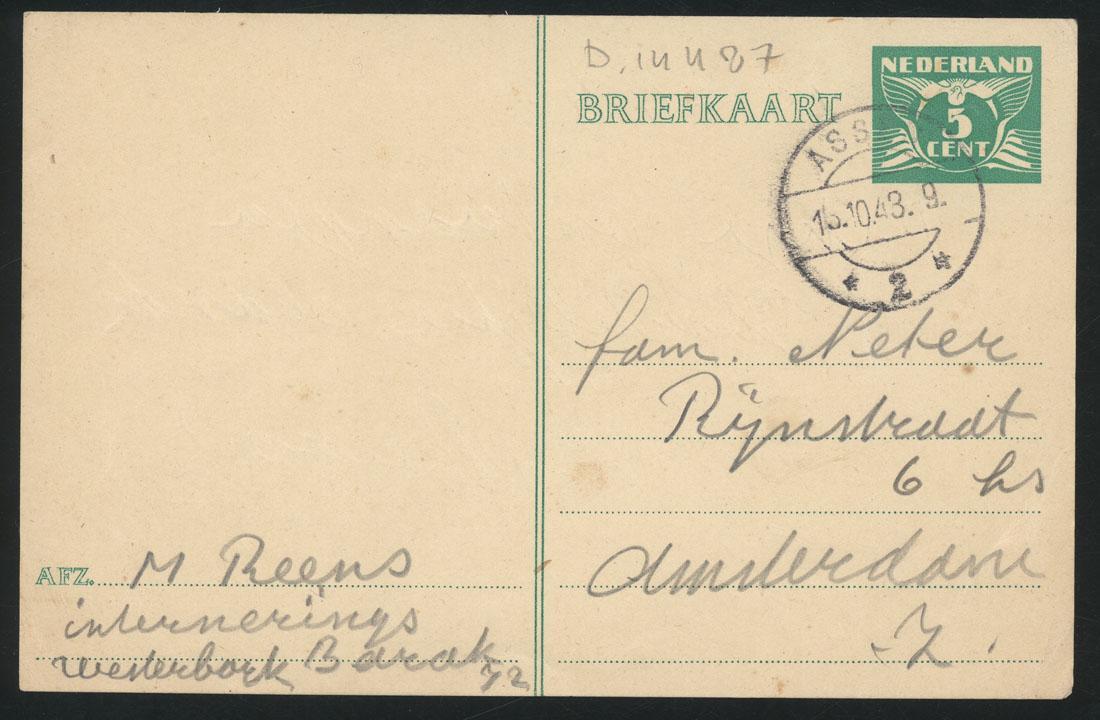 D. 14487
NEDERLAND
5
CENT
BRIEFKAART
ASS
.10.43. 9.
* 2 *
fam. Neter
Rijnstraat
6 hs
Amsterdam
Z.
AFZ. M Reens
internerings
Westerbork Barak 72